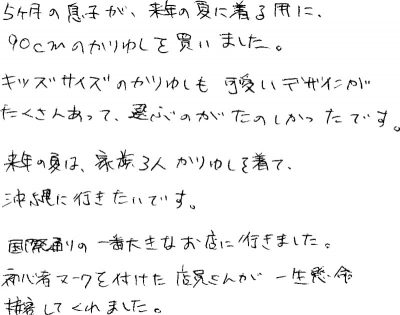 5ヶ月の息子が、来年の夏に着る用に、
90cmのかりゆしを買いました。
キッズサイズのかりゆしも 可愛いデザインが
たくさんあって、選ぶのがたのしかったです。
来年の夏は、家族3人かりゆしを着て、
沖縄に行きたいです。
国際通りの一番大きなお店に行きました。
初心者マークを付けた店員さんが一生懸命
接客してくれました。